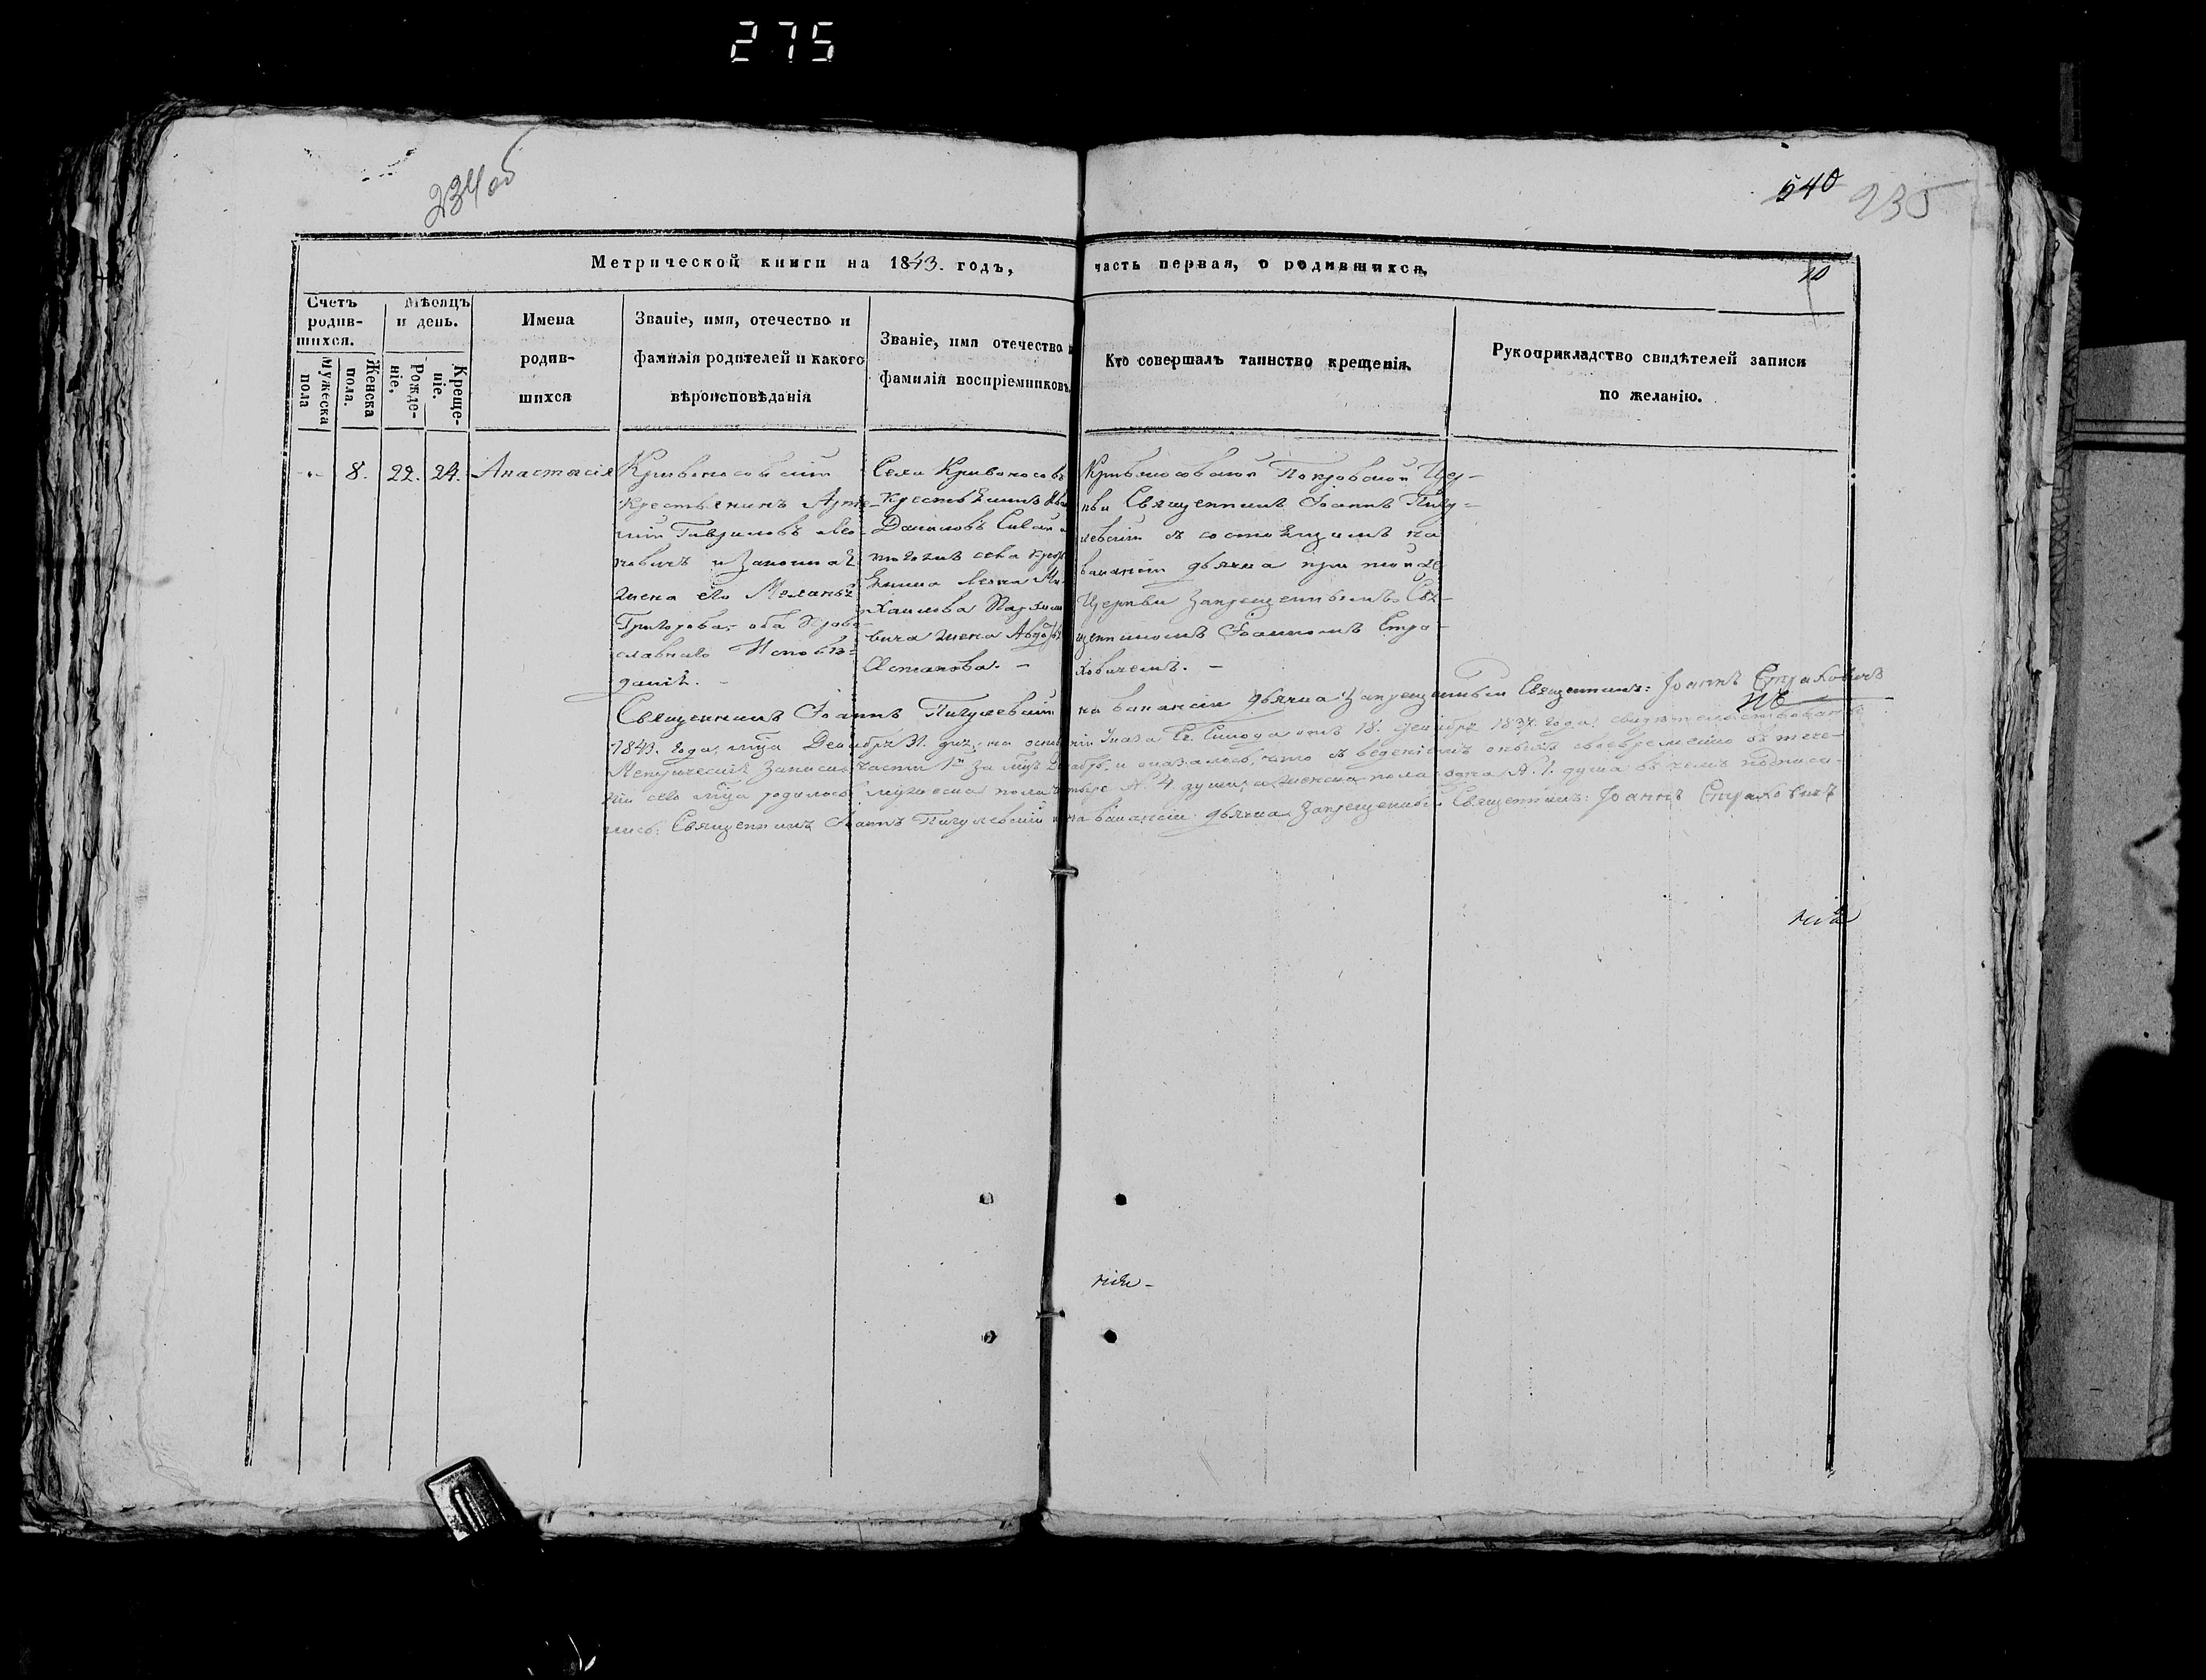 275
234об
540 235
Метрической книги на 1843. годъ, часть первая, о родившихся,
10
Счетъ родив-шихся.
Мужеска пола
Женска пола.
Мѣсяцъ и день.
Рожде-ніе,
Креще-ніе.
Имена
родив-
шихся
Званіе, имя, отечество и
фамилія родителей и какого
вѣроисповѣданія
Званіе, имя отечество и
фамилія воспріемниковъ
Кто совершалъ таинство крещенія.
Рукоприкладство свидѣтелей записи
по желанію.
8. 22. 24. Анастасія
Кривоносовскій
крестьянинъ
Гавриловъ Лео-
новичъ и законная
жена его Меланья
Григорова, оба Право-
славнаго Исповѣ-
данія.
Села Кривоносовъ
крестьянинъ
Даниловъ
тогоже села крест
янина Леона Ми
хаилова Пархомо
вича жена
Астапова. -
Кривоносовской Покровской Цер-
кви Священникъ Іоаннъ Пигу-
левскій съ состоящимъ на
вакансіи дьячка при той же
Церкви Запрещеннымъ Свя-
щенникомъ Іоанномъ Стра-
ховичемъ. -
Священникъ Іоаннъ Пигулевскій на вакансіи дьячка Запрещенный Священникъ: Іоаннъ Страховичъ
1843. года, мца Декабря 31. дня, на основаніи Указа Св. Синода отъ 18. Декабря 1837. года, свидѣтельствованы
Метрическія записи части 1й за мцъ Декабрь, и оказалось, что съ веденіемъ оныхъ своевременно въ тече-
ніи сего мца родилось мужеска пола четыре № 4 души, а женска пола одна № 1. душа въ чемъ подписа-
лись: Священникъ Іоаннъ Пигулевскій на вакансіи дьячка Запрещенный Священникъ: Іоаннъ Страховичъ